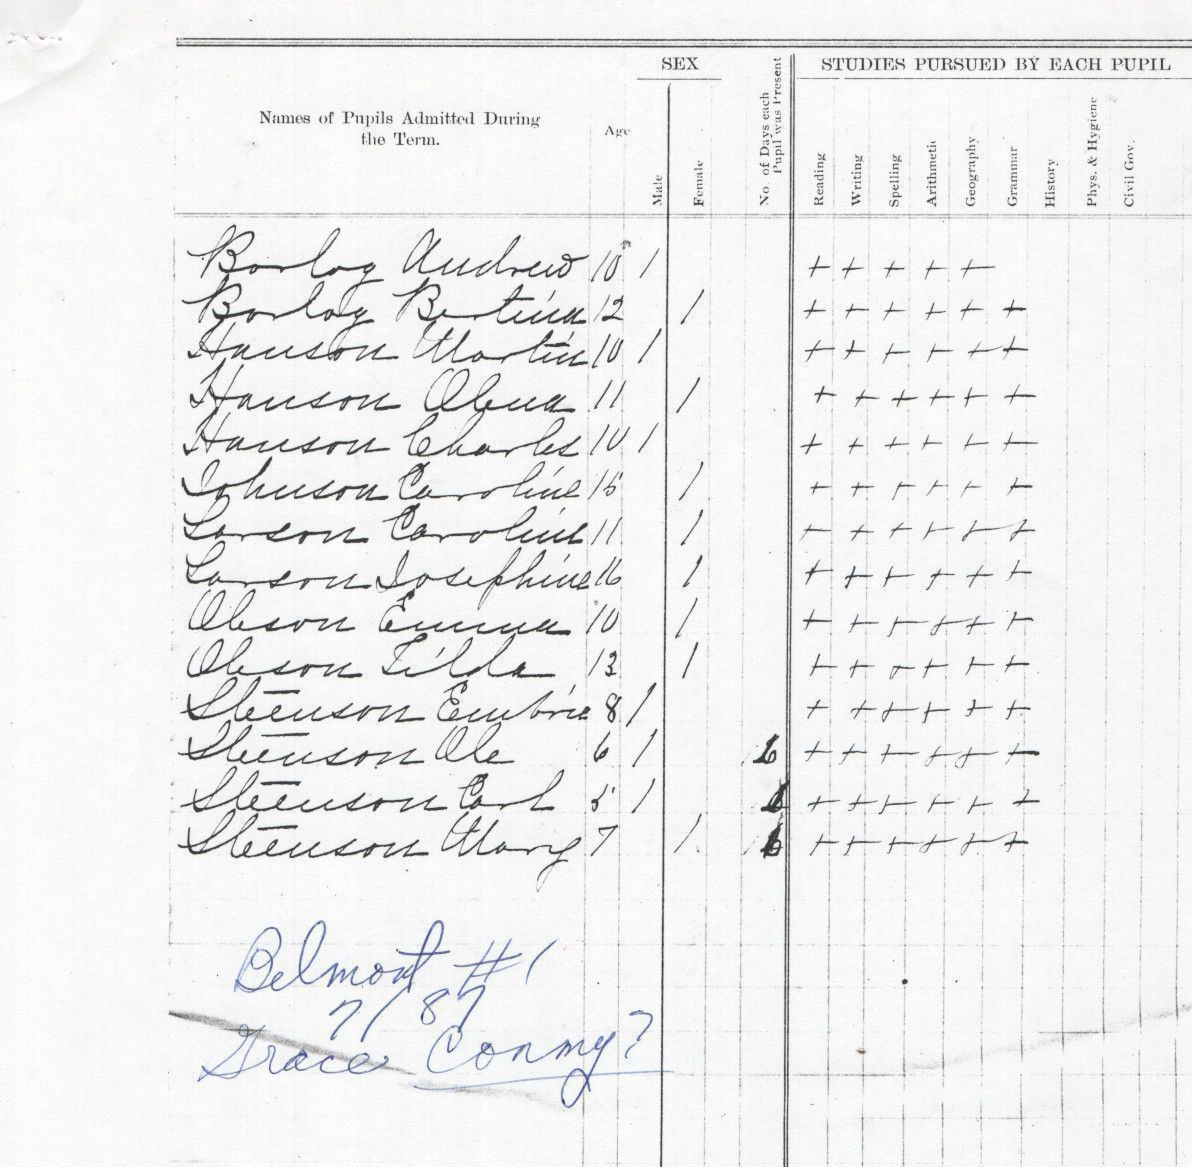 SEX
STUDIES PURSUED BY EACH PUPIL
Names of Pupils Admitted During
the Term.
Age
Male
Female
No. of Days each
Pupil was Present
Reading
Writing
Spelling
Arithmetic
Geography
Grammar
History
Phys. & Hygiene
Civil Gov.
Borlog Andrew 10 1 + + + + +
Borlog Bertina 12 1 + + + + + +
Hanson Martin 10 1 + + + + + +
Hanson Olena 11 1 + + + + + +
Hanson Charles 10 1 + + + + + +
Johnson Caroline 15 1 + + + + + +
Larson Caroline 11 1 + + + + + +
Larson Josephine 16 1 + + + + + +
Oleson Emma 10 1 + + + + + +
Oleson Tilda 13 1 + + + + + +
Steenson Embrie 8 1 + + + + + +
Steenson Ole 6 1 + + + + + +
Steenson Carl 5 1 + + + + + +
Steenson Mary 7 1 + + + + + +
Belmont #1
7/87
Grace Conmy?